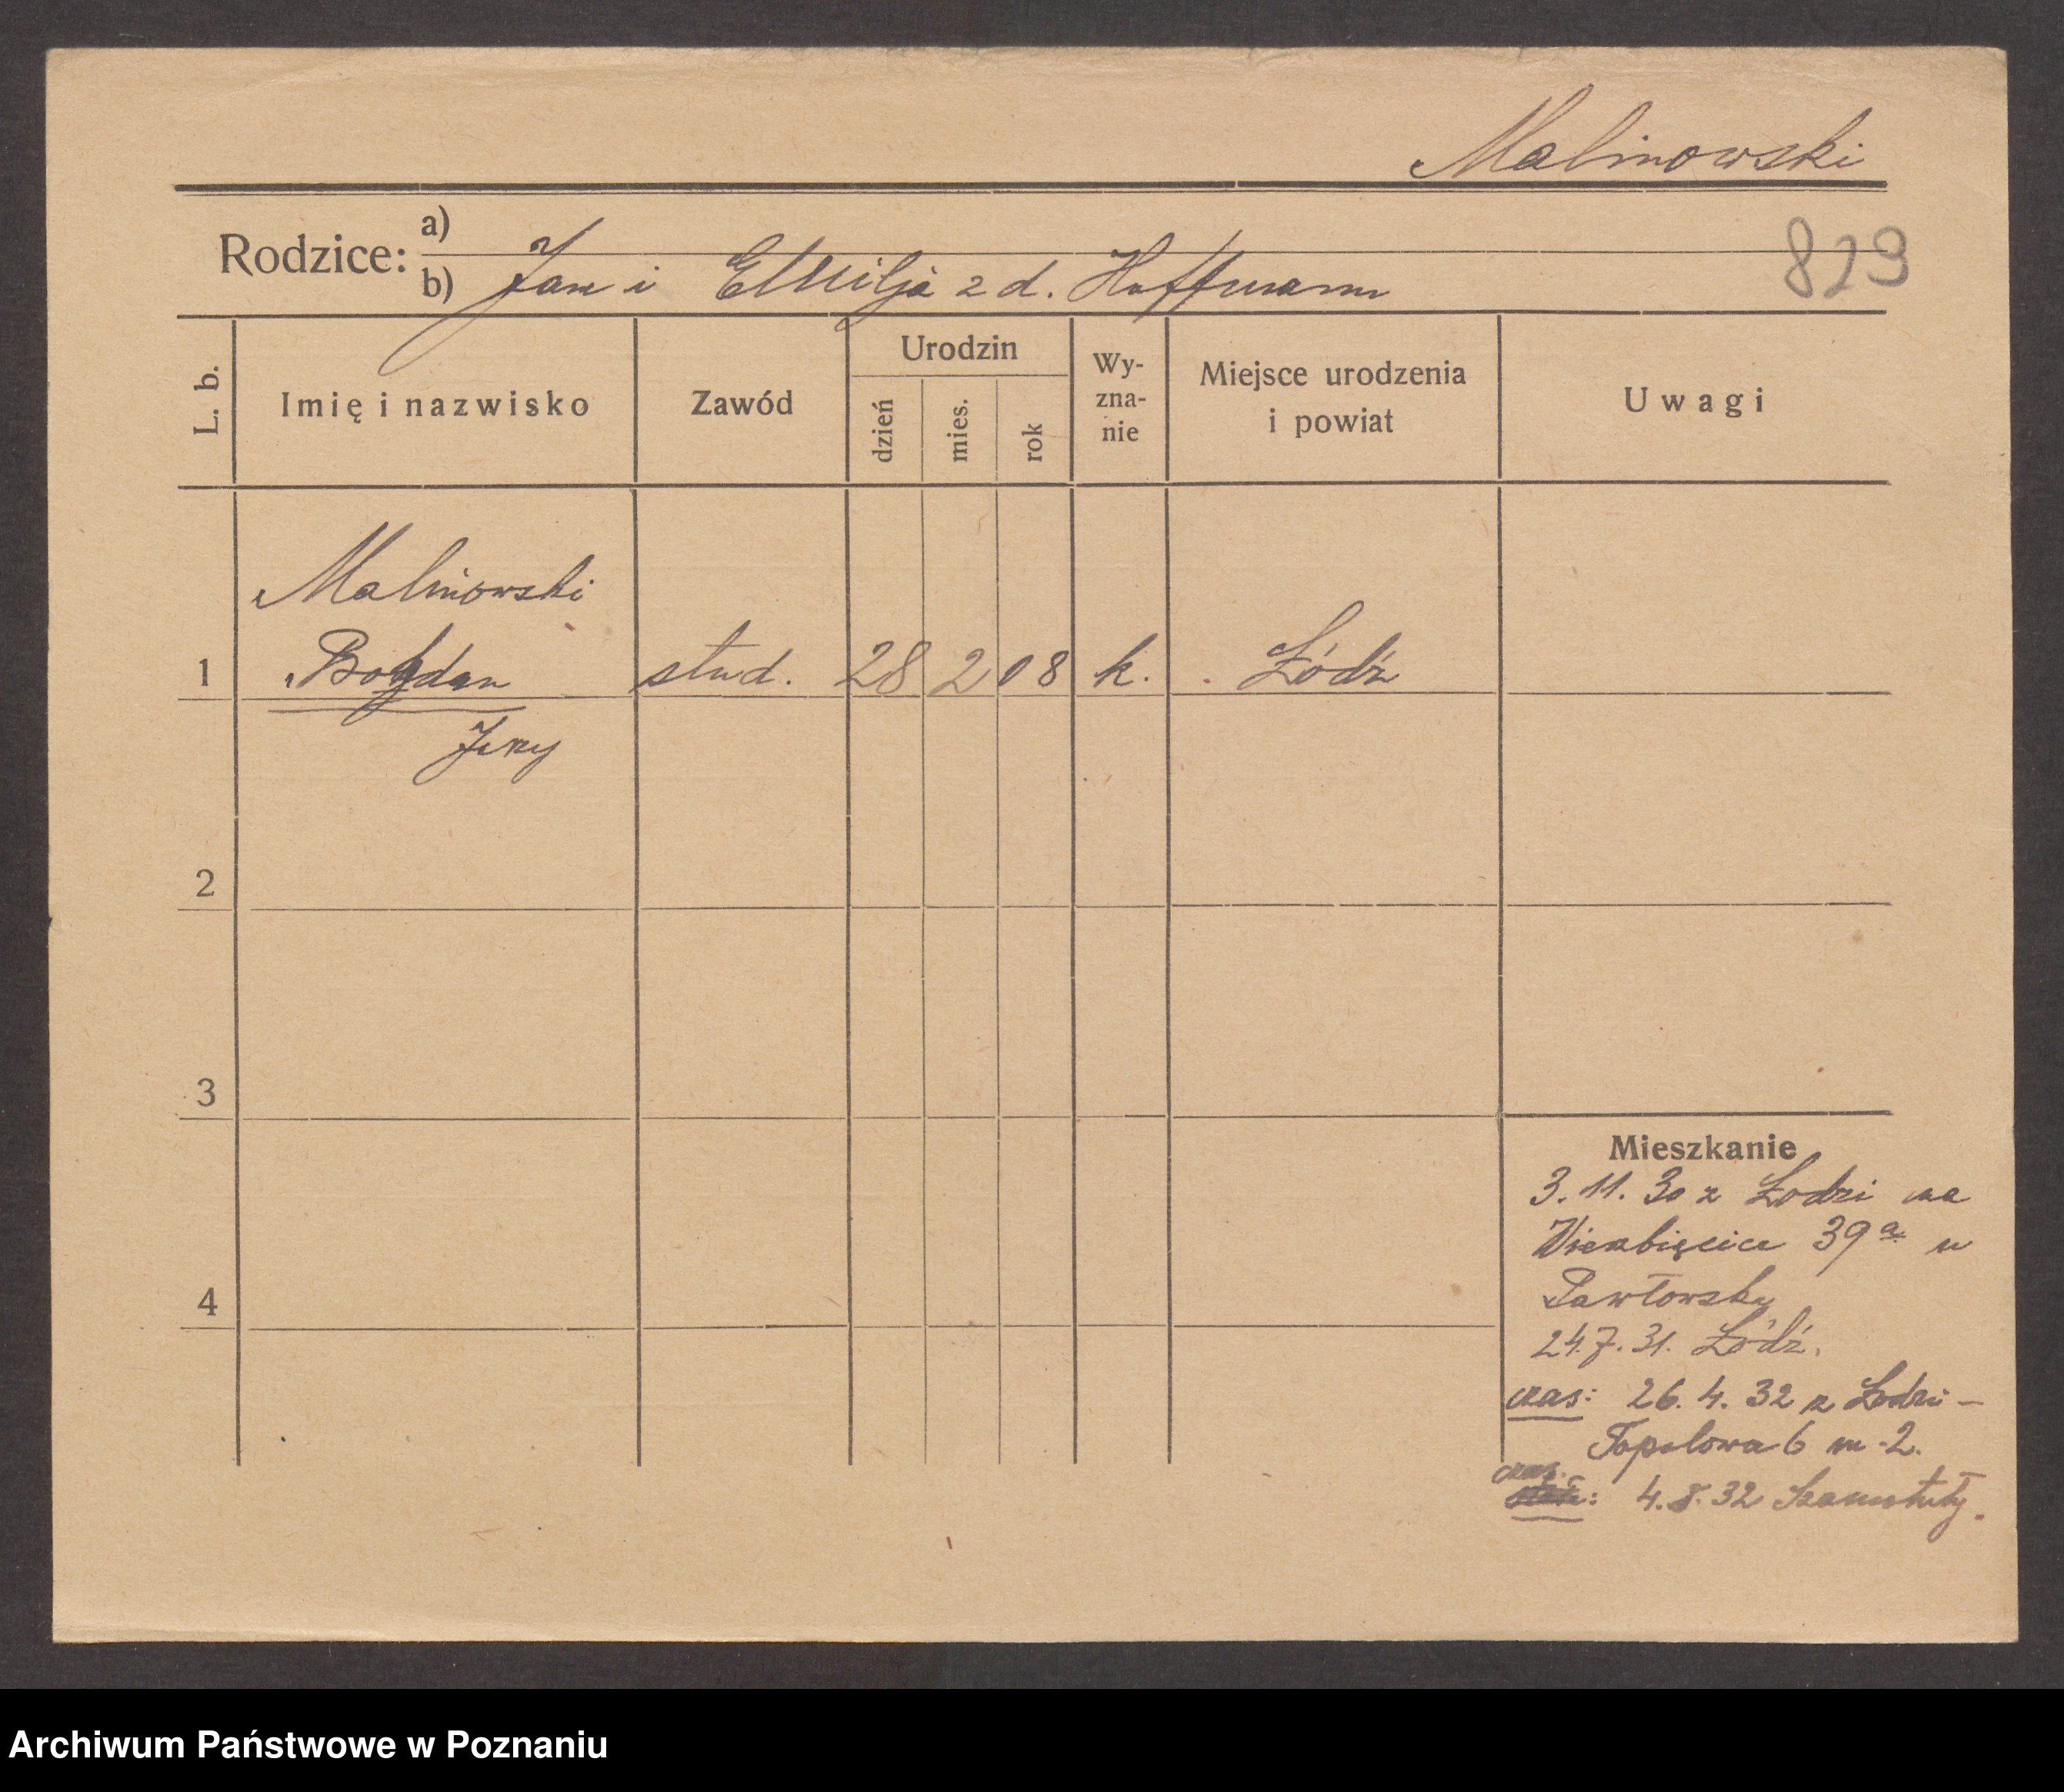 Malinowski
Rodzice:
a)
b) Jan i Emilja z d. Hoffmann
829
L. b.
Imię i nazwisko
Zawód
Urodzin
dzień
mies.
rok
Wy-
zna-
nie
Miejsce urodzenia
i powiat
Uwagi
Malinowski
1 Bohdan stud. 28 2 08 k. Łódź
Jerzy
2
3
4
Mieszkanie
3. 11. 30 z Łodzi na
Wierzbięcice 39a u
Pawłowsky
24. 7. 31. Łódź.
czas: 26. 4. 32 z Łodzi –
Topolowa 6 m. 2.
czas.
: 4. 8. 32 Szamotuły.
Archiwum Państwowe w Poznaniu